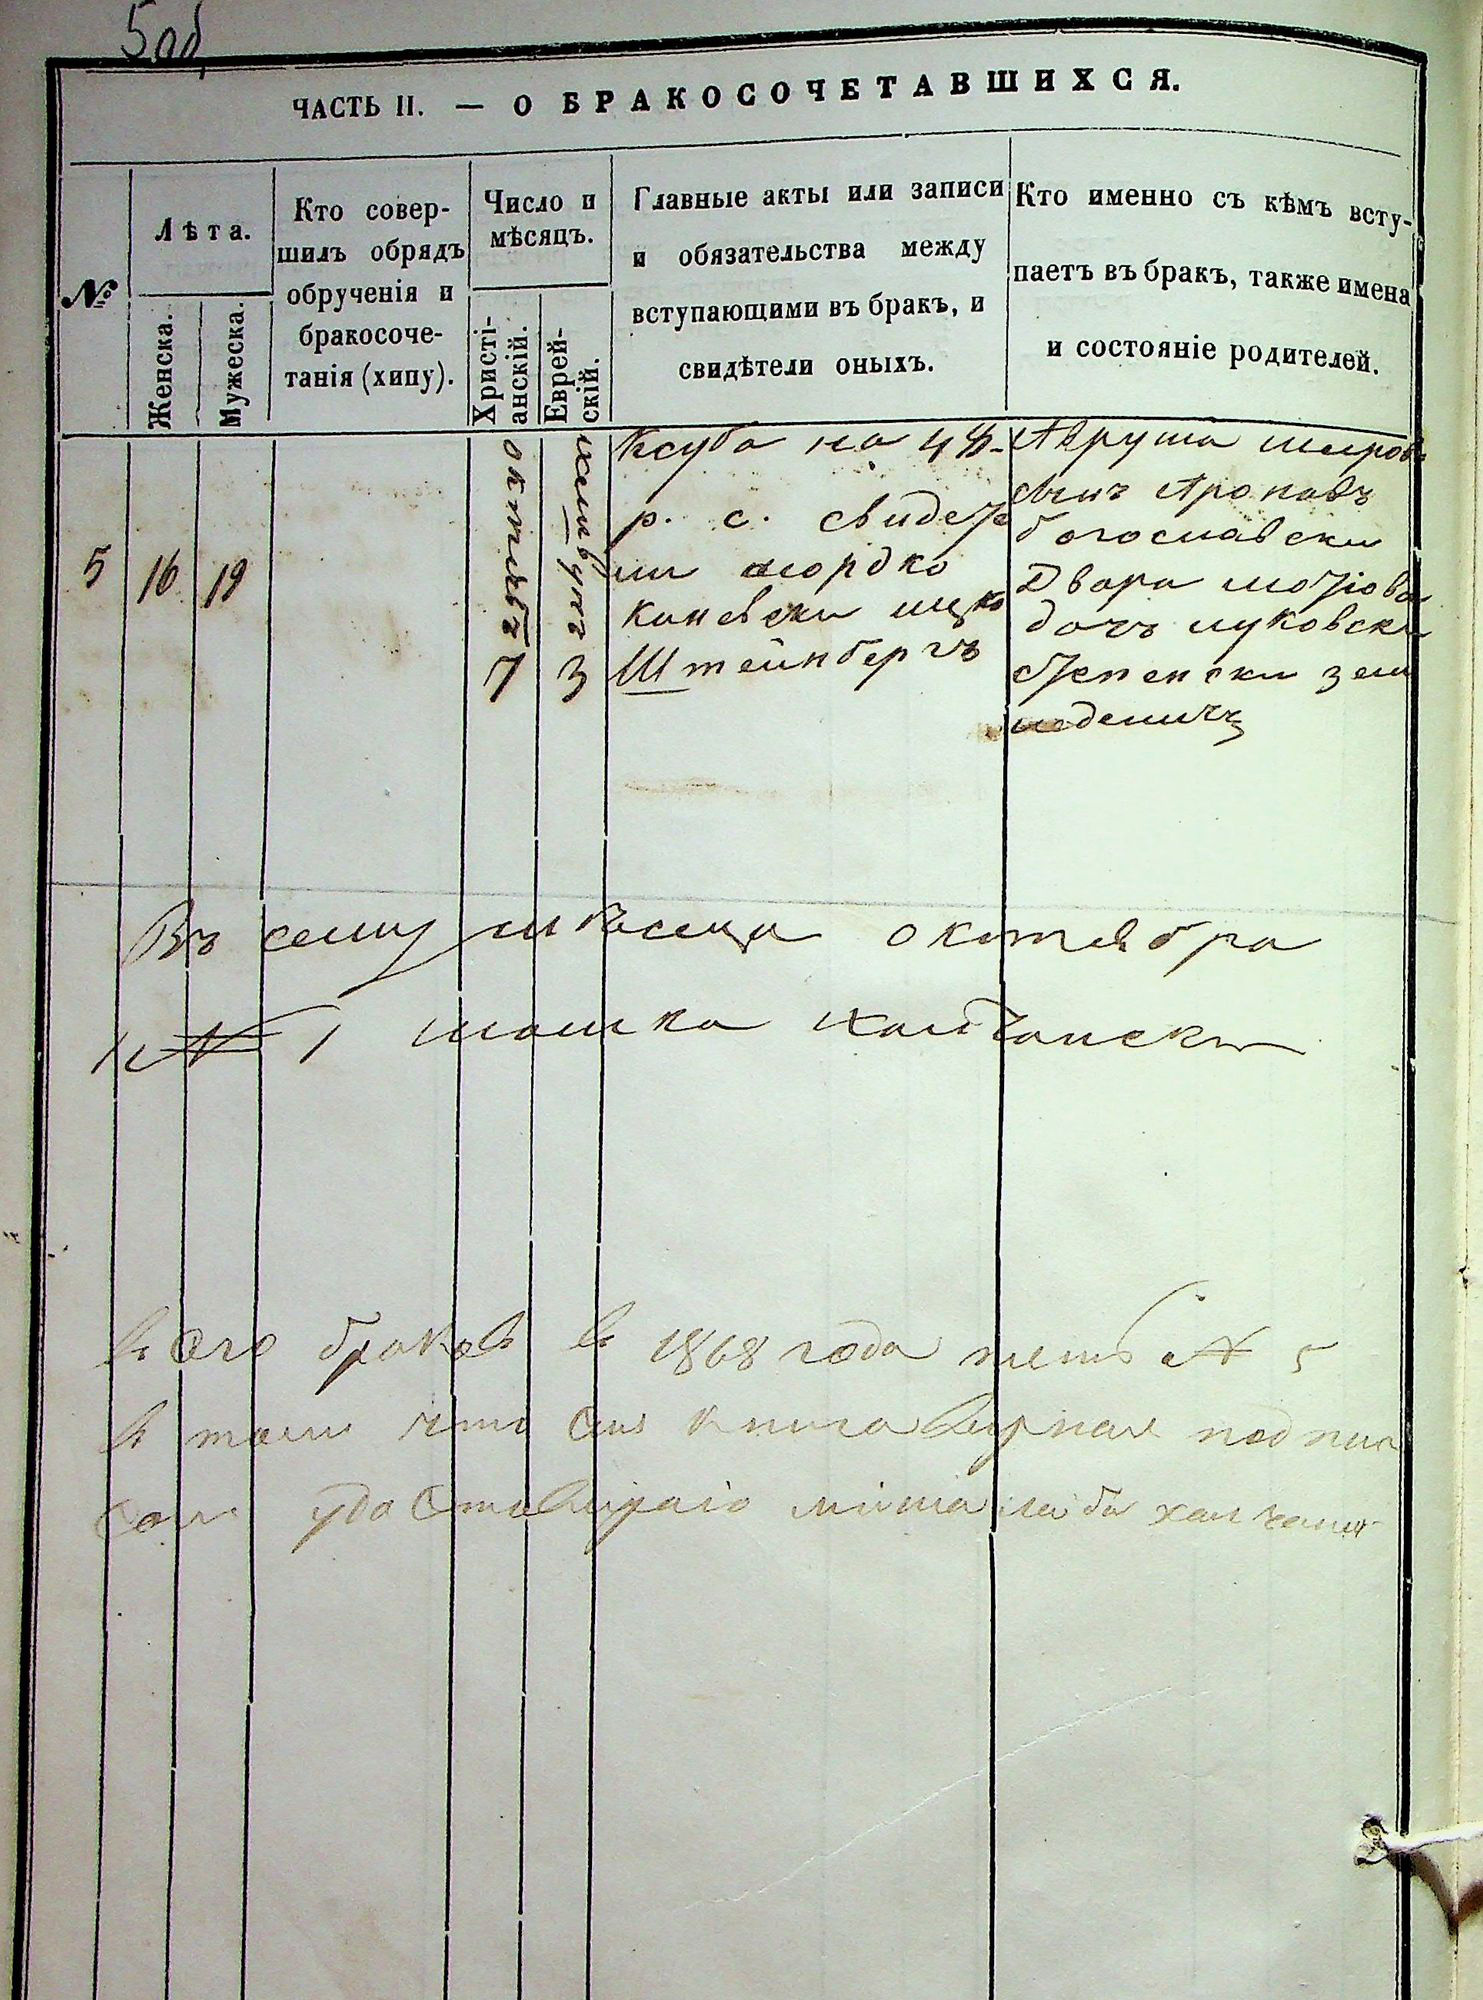 5 об
ЧАСТЬ II. — О БРАКОСОЧЕТАВШИХСЯ.
№
Лѣта.
Женска.
Мужеска.
Кто совер-
шилъ обрядъ
обрученія и
бракосоче-
танія (хипу).
Число и
мѣсяцъ.
Христі-
анскій.
Еврей-
скій.
Главные акты или записи
и обязательства между
вступающими въ бракъ, и
свидѣтели оныхъ.
Кто именно съ кѣмъ всту-
паетъ въ бракъ, также имена
и состояніе родителей.
5
16
19
октябъ
7
3
Ксуба на 48
р. с. свидете
ли мордко
каневски ицко
Штейнбергъ
Авруша
богославски
Двора
дочъ луковски
степенски зем
леделичъ
Въ сему месеца октебра
№ 1 мошка халчански
всего браковъ в 1868 года пять № 5
в том что сия книга верная подпис
сом удостовераю лейба